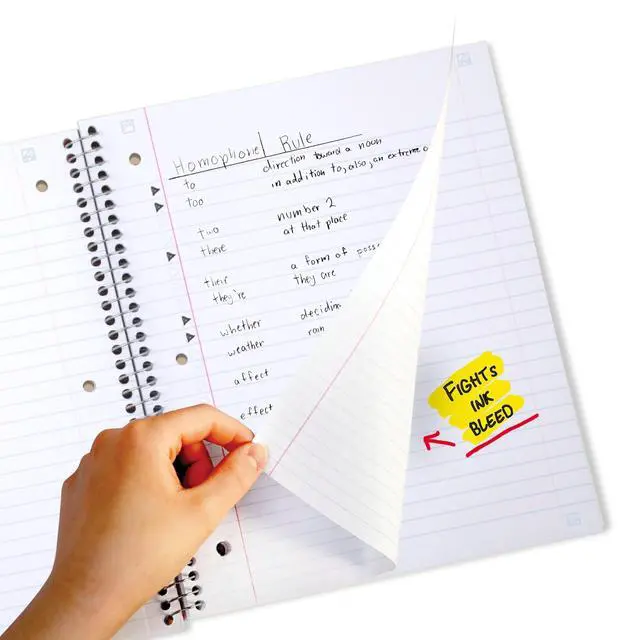 Homophone Rule
to direction toward a noon
too in addition to, also, an extreme
two number 2
there at that place
their a form of poss
they're they are
whether decidin
weather rain
affect
effect
FIGHTS
INK
BLEED